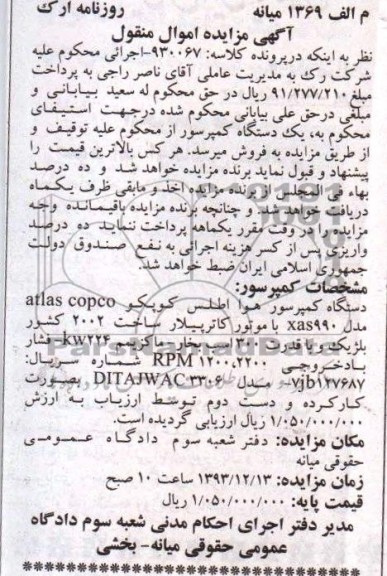 م الف ۱۳۶۹ میانه روزنامه ارک
آگهی مزایده اموال منقول
نظر به اینکه درپرونده کلاسه: ۹۳۰۰۶۷-اجرائی محکوم علیه
شرکت رک به مدیریت عاملی آقای ناصر راجی به پرداخت
مبلغ ۹۱/۲۷۷/۲۱۰ ریال در حق محکوم له سعید بیابانی و
مبلغی درحق علی بیابانی محکوم شده درجهت استیفای
محکوم به، یک دستگاه کمپرسور از محکوم علیه توقیف و
از طریق مزایده به فروش میرسد، هر کس بالاترین قیمت را
پیشنهاد و قبول نماید برنده مزایده خواهد شد و ده درصد
بهاء فی المجلس از برنده مزایده اخذ و مابقی ظرف یکماه
دریافت خواهد شد و چنانچه برنده مزایده باقیمانده وجه
مزایده را در وقت مقرر یکماهه پرداخت ننماید ده درصد
واریزی پس از کسر هزینه اجرائی به نفع صندوق دولت
جمهوری اسلامی ایران ضبط خواهد شد.
مشخصات کمپرسور:
دستگاه کمپرسور هوا اطلس کوپکو atlas copco
مدل xas۹۹۰ با موتور کاترپیلار ساخت ۲۰۰۲ کشور
بلژیک وبا قدرت ۳۰۰ اسب بخار ماکزیمم kw۲۲۴-فشار
بادخروجی RPM ۱۲۰۰،۲۲۰۰ شماره سریال:
vjb۱۲۷۶۸۷- مدل DITAJWAC ۳۳۰۶ بصورت
کارکرده و دست دوم توسط ارزیاب به ارزش
۱/۰۵۰/۰۰۰/۰۰۰ ریال ارزیابی گردیده است.
مکان مزایده: دفتر شعبه سوم دادگاه عمومی
حقوقی میانه
زمان مزایده: ۱۳۹۳/۱۲/۱۳ ساعت ۱۰ صبح
قیمت پایه: ۱/۰۵۰/۰۰۰/۰۰۰ ریال
مدیر دفتر اجرای احکام مدنی شعبه سوم دادگاه
عمومی حقوقی میانه- بخشی